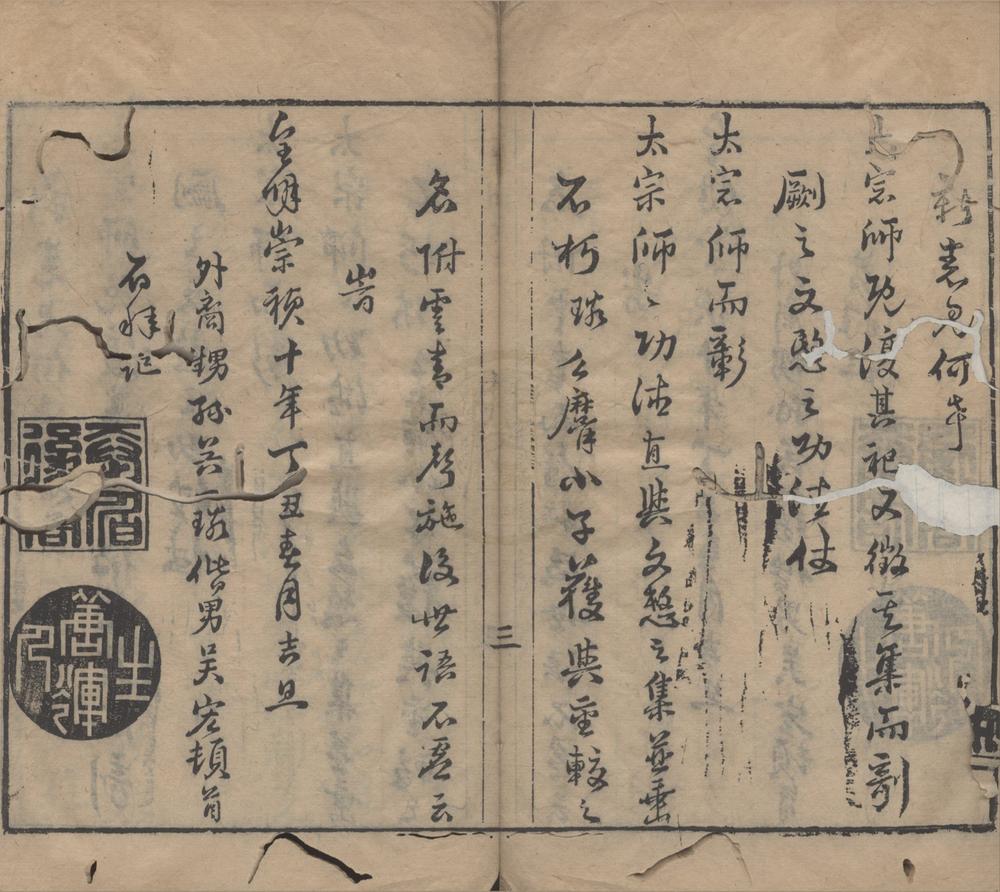 新書見何才
太宗師既復其祀又徵其集而剞
劂之文愍之功德仗
太宗師而彰
太宗師之功德直與文愍之集並垂
不朽璘么麼小子獲與重較之
名附雲青而聲施後世語不虛云
時
皇明崇禎十年丁丑春月吉旦
外裔甥孫吳璘偕男吳宏頓首
百拜記
三